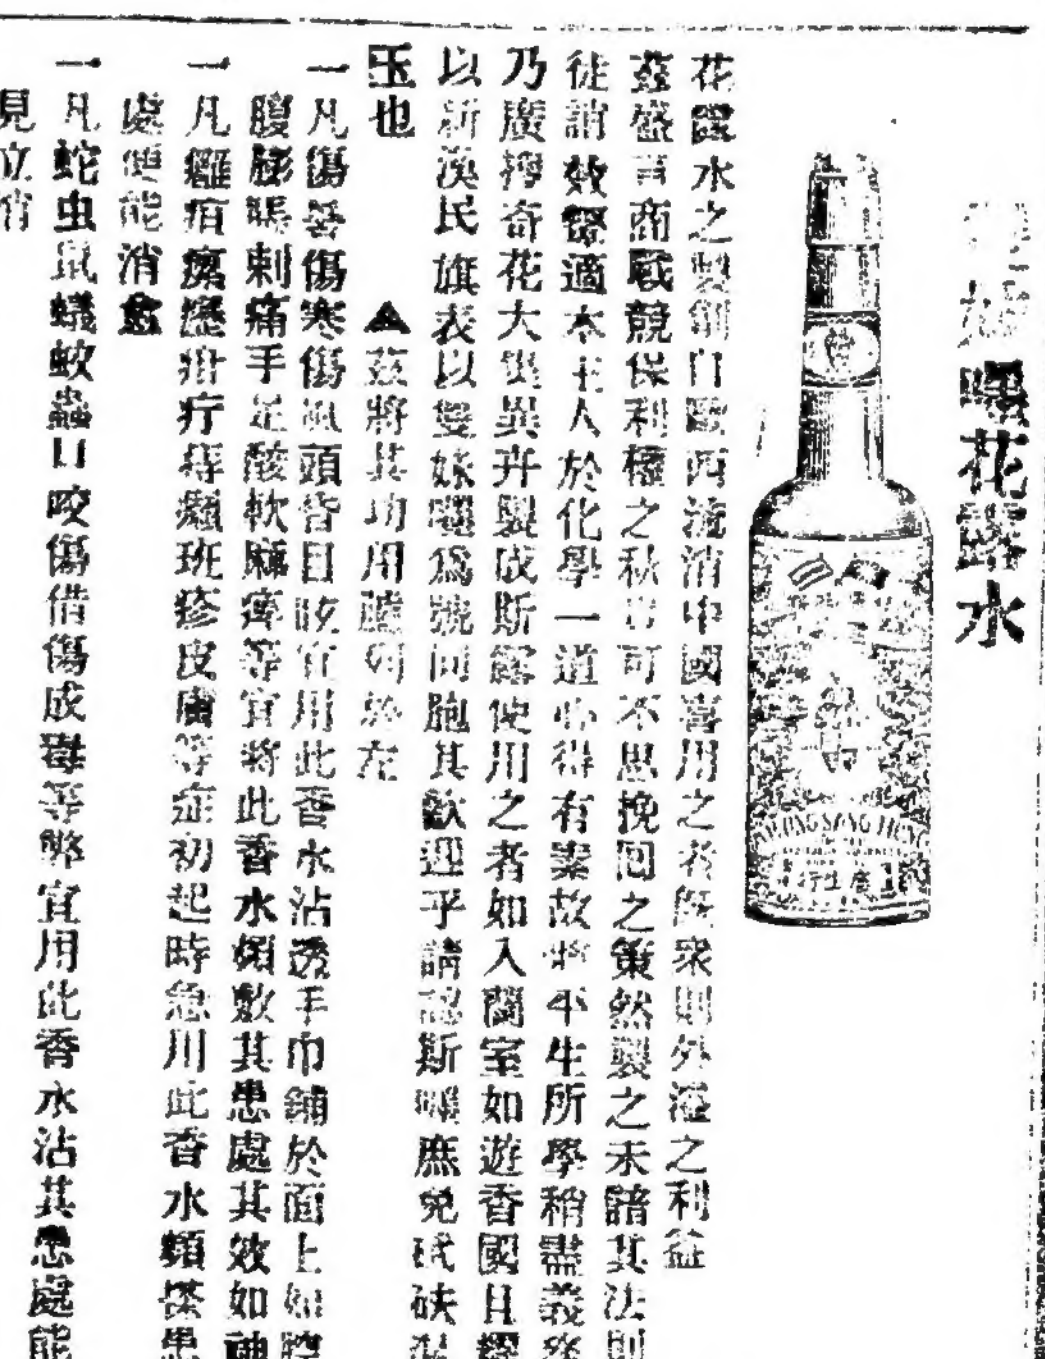 嘜花露水
KWONG SANG HONG
行生廣
花露水之製創自歐西流消中國喜用之者既衆則外溢之利益
益盛言商戰競保利權之秋豈可不思挽囘之策然製之未諳其法則
徒誚效顰適本主人於化學一道心得有素故將平生所學稍盡義務
乃廣搜奇花大異卉製成斯露使用之者如入蘭室如遊香國且
以新漢民旗表以雙妹嘜爲號同胞其歡迎乎請認斯嘜庶免碔砆混
玉也　▲茲將其功用臚列於左
一凡傷暑傷寒傷風頭昏目眩宜用此香水沾透手巾鋪於面上如
腹膨脹刺痛手足酸軟麻痺等宜將此香水頻敷其患處其效如神
一凡癰疽癘癧疳疔痔癩班疹皮膚等症初起時急用此香水頻搽患
處便能消愈
一凡蛇虫鼠蟻蚊蟲口咬傷借傷成毒等弊宜用此香水沾其患處能
見立消